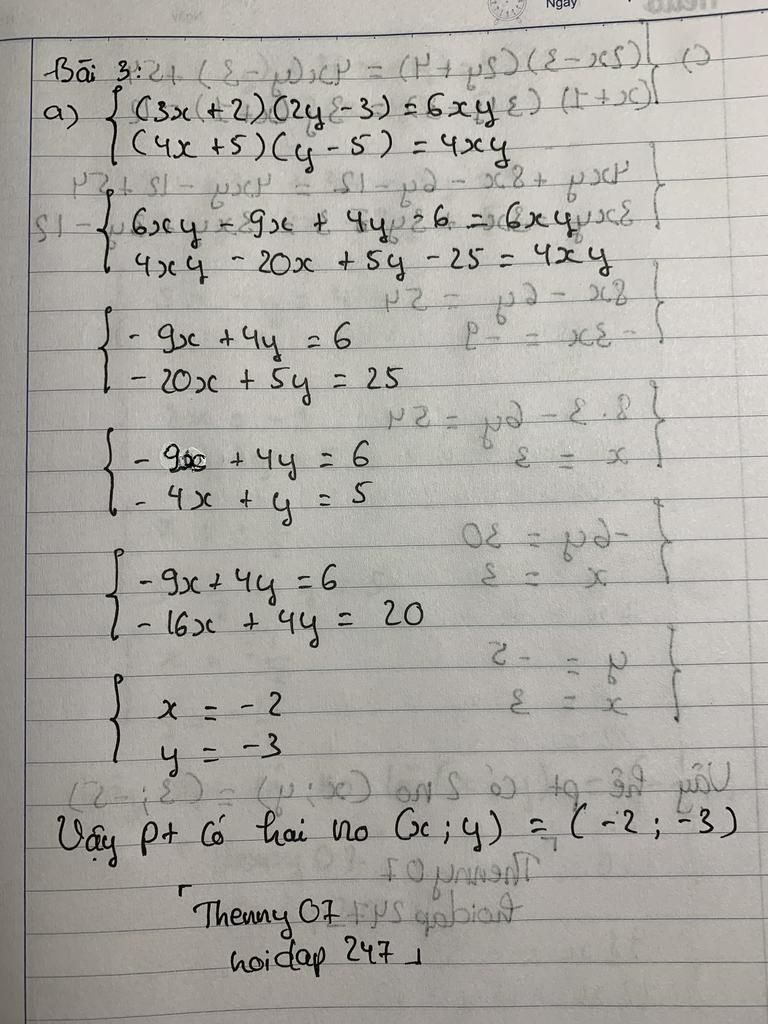 Ngày
Bài 3:
a) { (3x + 2)(2y - 3) = 6xy
(4x + 5)(y - 5) = 4xy
{ 6xy - 9x + 4y - 6 = 6xy
4xy - 20x + 5y - 25 = 4xy
{ - 9x + 4y = 6
- 20x + 5y = 25
{ - 9x + 4y = 6
- 4x + y = 5
{ - 9x + 4y = 6
- 16x + 4y = 20
{ x = - 2
y = - 3
Vậy pt có hai no (x; y) = (-2; -3)
「 Thenny 07
hoidap 247 」